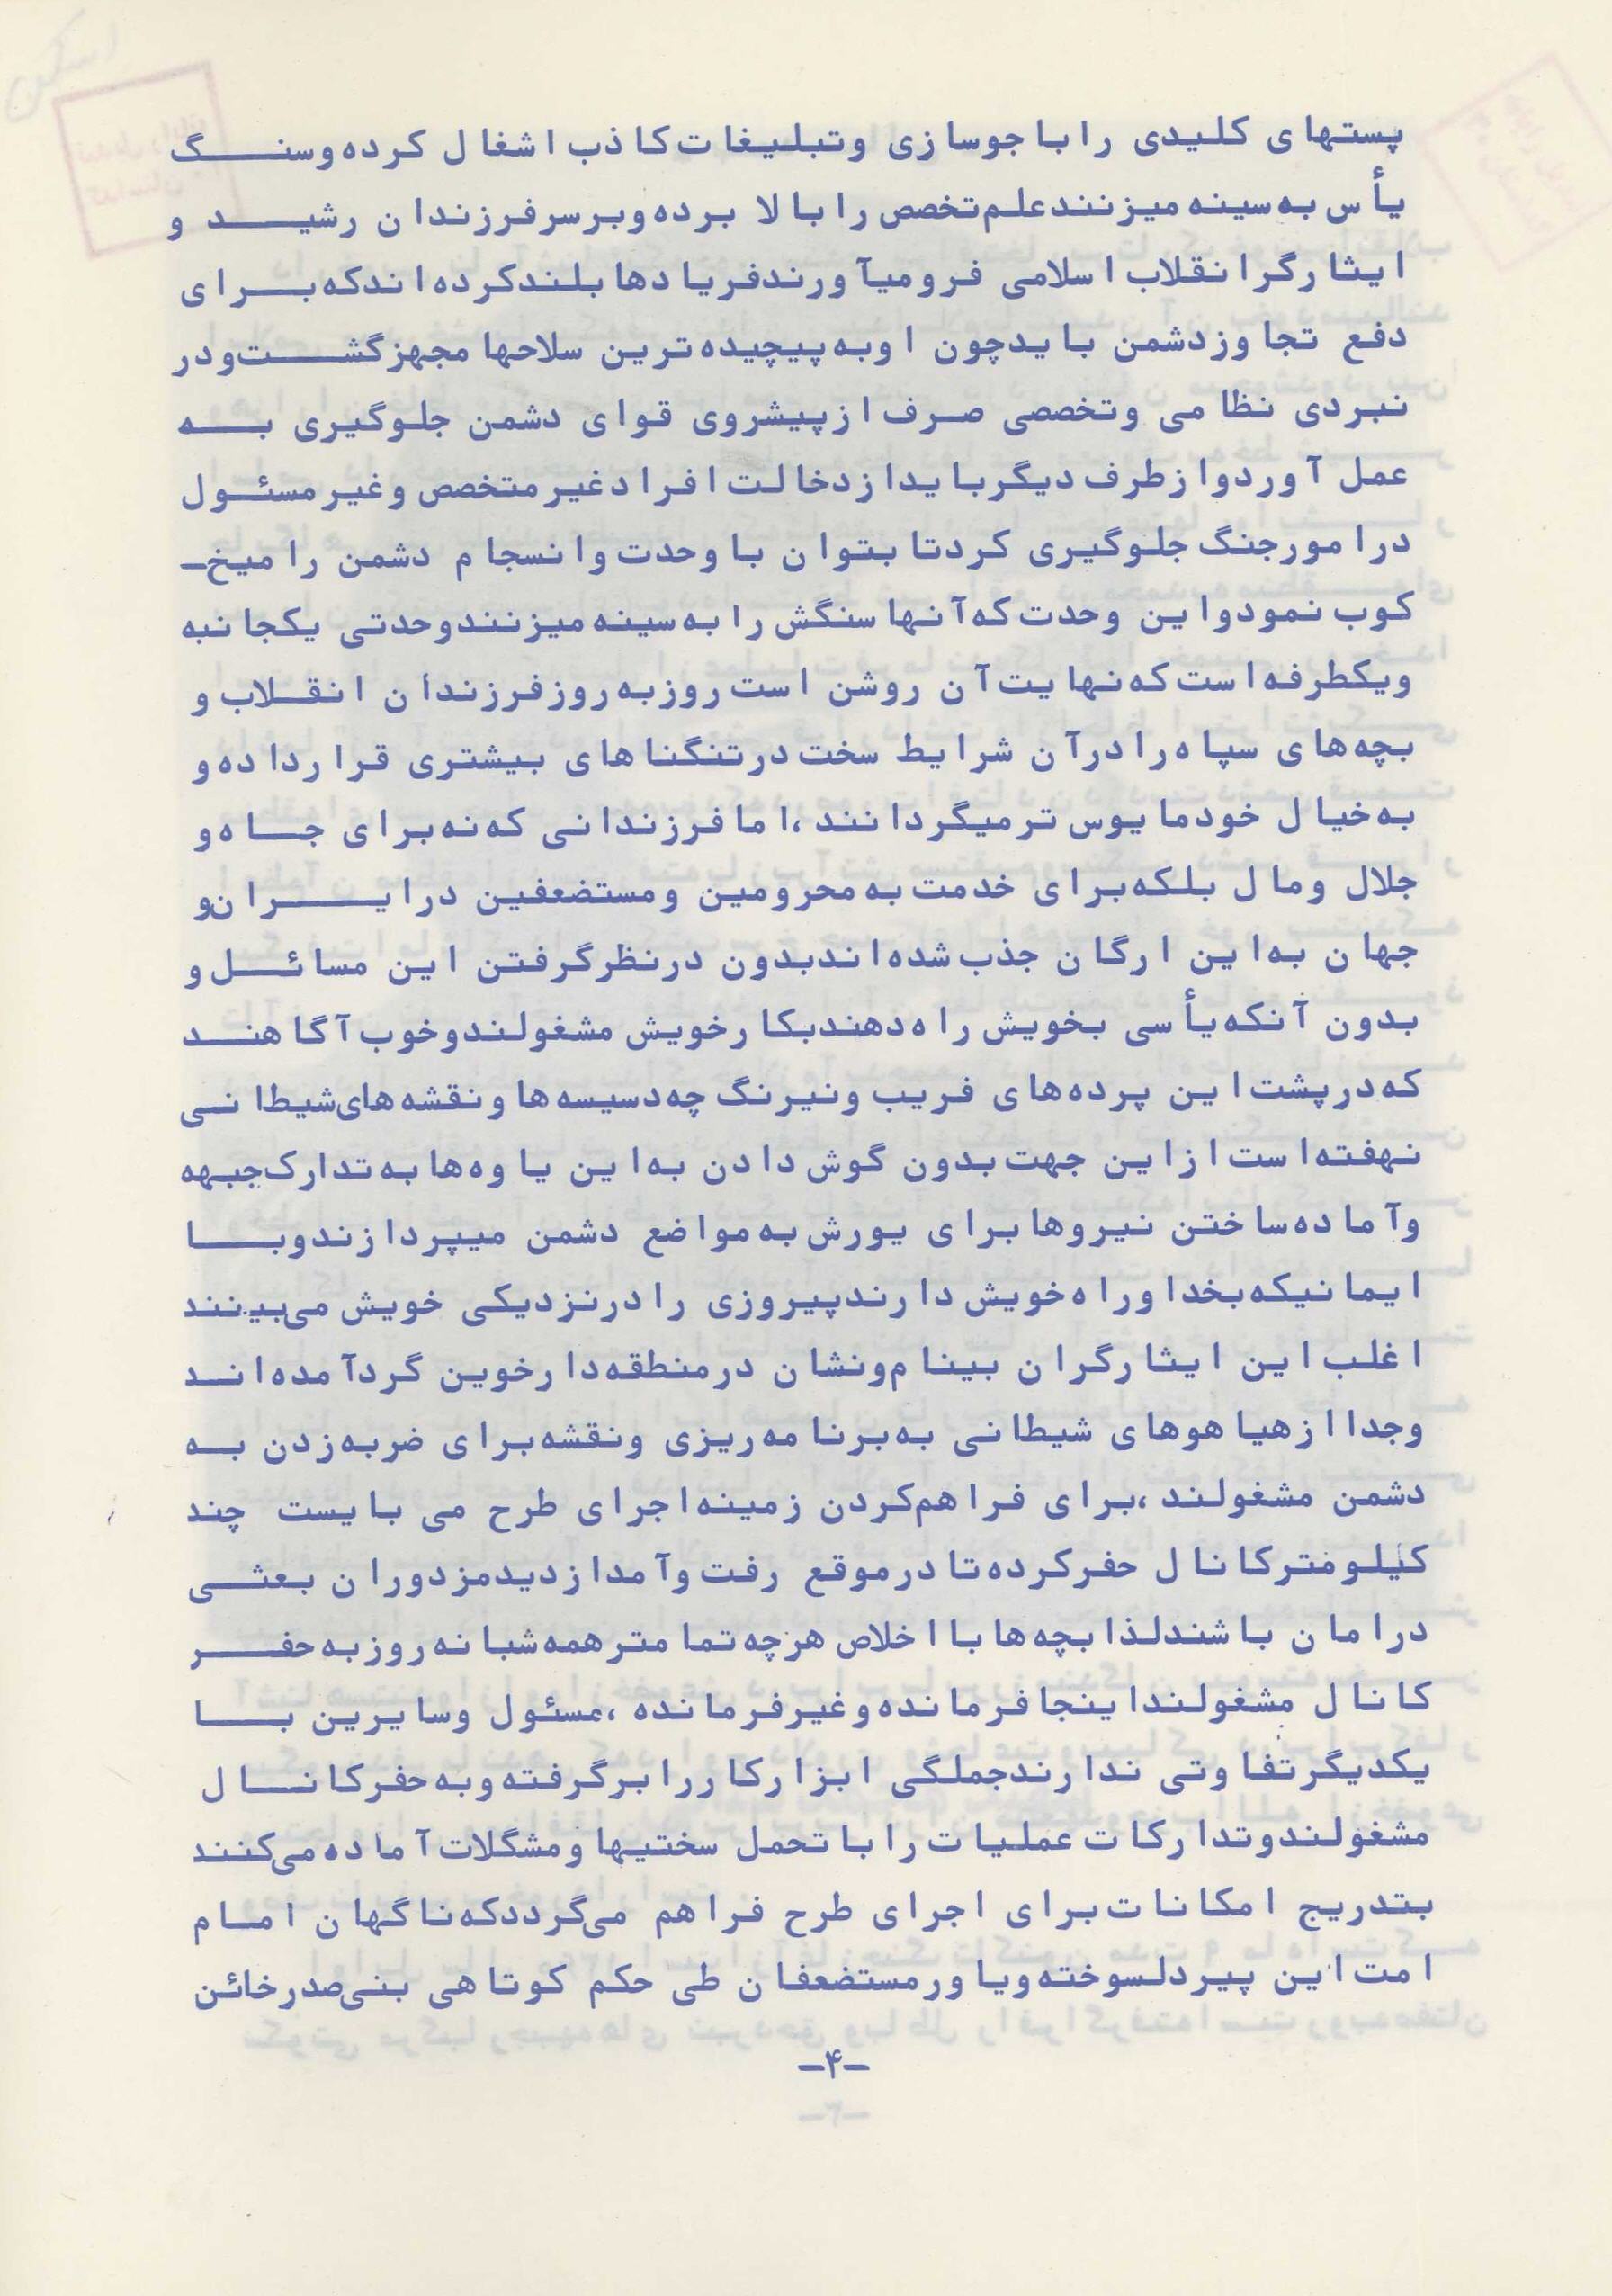 پستهای کلیدی را با جوسازی و تبلیغات کاذب اشغال کرده و سنگ
یأس به سینه میزنند علم تخصص را بالا برده و بر سر فرزندان رشید و
ایثارگر انقلاب اسلامی فرو میآورند فریادها بلند کرده اند که برای
دفع تجاوز دشمن باید چون او به پیچیده ترین سلاحها مجهز گشت و در
نبردی نظامی و تخصصی صرف از پیشروی قوای دشمن جلوگیری به
عمل آورد و از طرف دیگر باید از دخالت افراد غیر متخصص و غیر مسئول
در امور جنگ جلوگیری کرد تا بتوان با وحدت و انسجام دشمن را میخ-
کوب نمود و این وحدت که آنها سنگش را به سینه میزنند وحدتی یکجانبه
و یکطرفه است که نهایت آن روشن است روز به روز فرزندان انقلاب و
بچه های سپاه را در آن شرایط سخت در تنگناهای بیشتری قرار داده و
به خیال خود مایوس تر میگردانند، اما فرزندانی که نه برای جاه و
جلال و مال بلکه برای خدمت به محرومین و مستضعفین در ایران و
جهان به این ارگان جذب شده اند بدون در نظر گرفتن این مسائل و
بدون آنکه یأسی بخویش راه دهند بکار خویش مشغولند و خوب آگاهند
که در پشت این پرده های فریب و نیرنگ چه دسیسه ها و نقشه های شیطانی
نهفته است از این جهت بدون گوش دادن به این یاوه ها به تدارک جبهه
و آماده ساختن نیروها برای یورش به مواضع دشمن میپردازند و با
ایمانیکه بخدا و راه خویش دارند پیروزی را در نزدیکی خویش می بینند
اغلب این ایثارگران بینام و نشان در منطقه دارخوین گرد آمده اند
و جدا از هیاهوهای شیطانی به برنامه ریزی و نقشه برای ضربه زدن به
دشمن مشغولند، برای فراهم کردن زمینه اجرای طرح می بایست چند
کیلومتر کانال حفر کرده تا در موقع رفت و آمد از دید مزدوران بعثی
در امان باشند لذا بچه ها با اخلاص هرچه تمامتر همه شبانه روز به حفر
کانال مشغولند اینجا فرمانده و غیر فرمانده، مسئول و سایرین با
یکدیگر تفاوتی ندارند جملگی ابزار کار را برگرفته و به حفر کانال
مشغولند و تدارکات عملیات را با تحمل سختیها و مشگلات آماده می کنند
بتدریج امکانات برای اجرای طرح فراهم می گردد که ناگهان امام
امت این پیر دلسوخته و یاور مستضعفان طی حکم کوتاهی بنی صدر خائن
-۴-